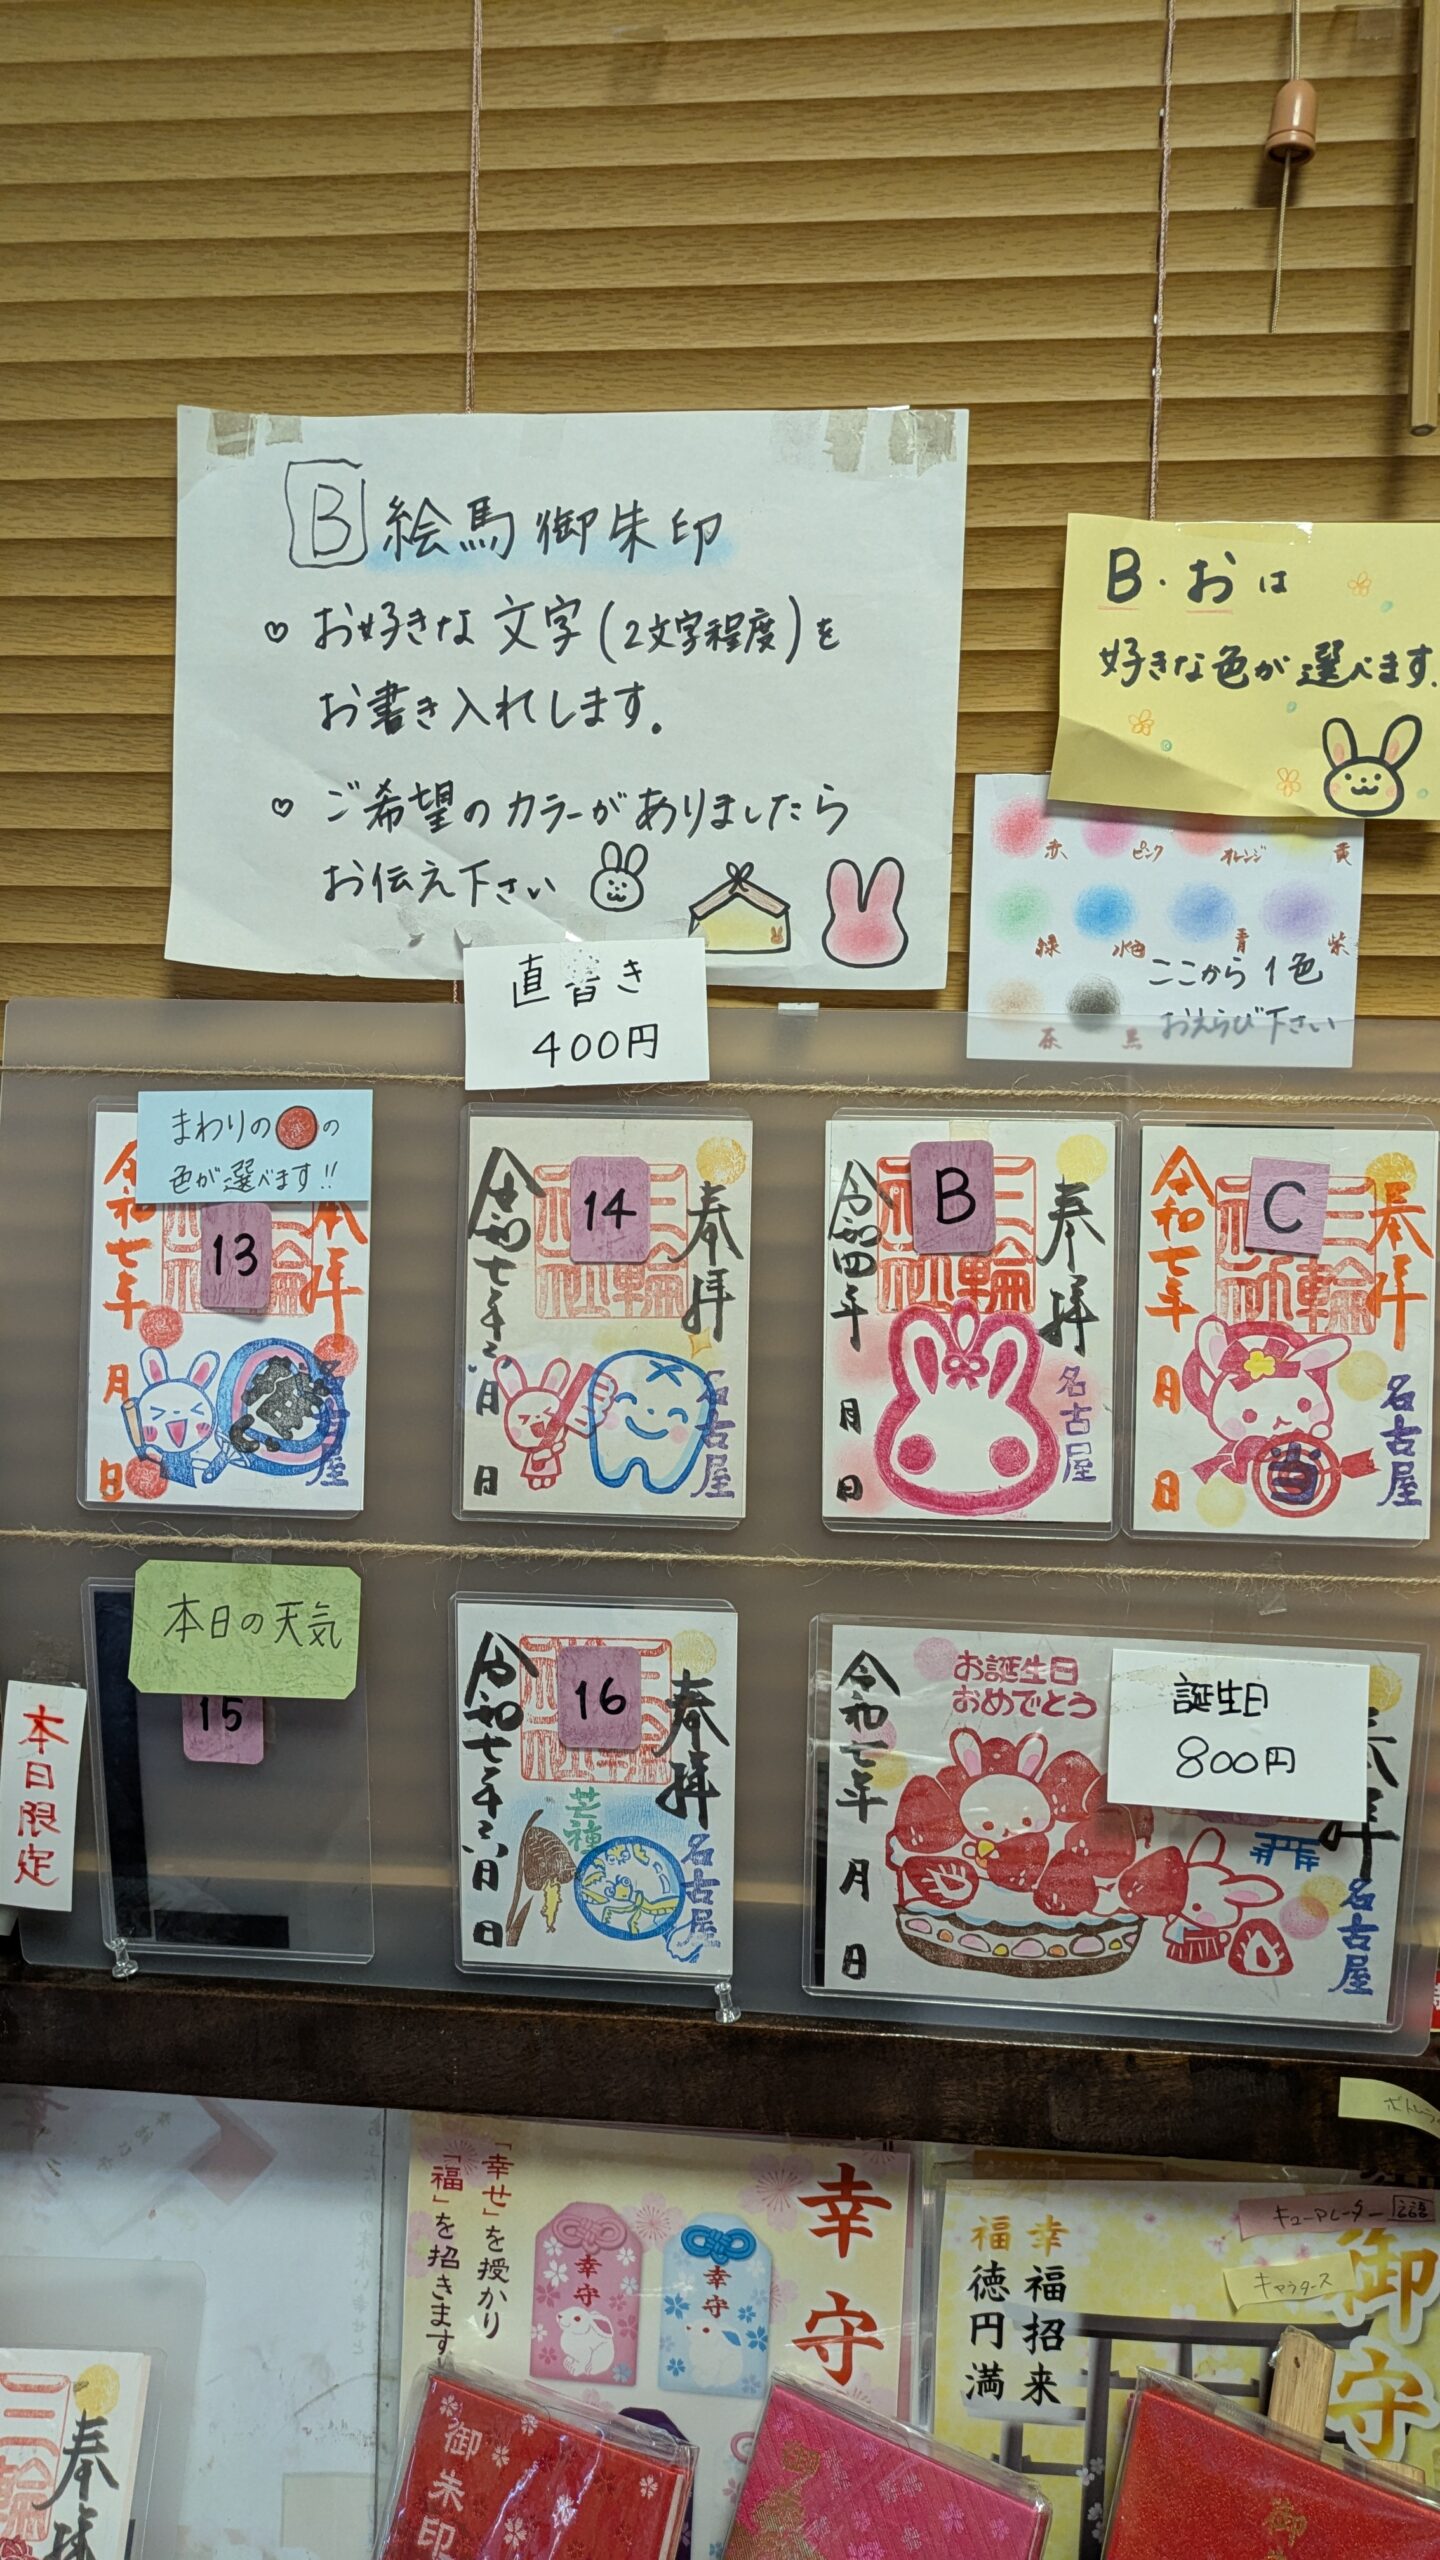 B 絵馬御朱印
♡ お好きな文字(2文字程度)を
お書き入れします。
♡ ご希望のカラーがありましたら
お伝え下さい
B・おは
好きな色が選べます.
赤 ピンク オレンジ 黄
緑 水色 青 紫
茶 黒
ここから1色
おえらび下さい
直書き
400円
まわりの の
色が選べます!!
13
令和七年
月
日
拝
14
奉拝
三輪神社
令和七年六月
日
名古屋
B
奉拝
令和四年
月
日
名古屋
C
奉拝
令和七年
月
日
当
名古屋
本日限定
本日の天気
15
16
奉拝
令和七年六月
日
芒種
名古屋
令和七年
月
日
お誕生日
おめでとう
誕生日
800円
名古屋
幸守
「幸せ」を授かり
「福」を招きます
幸守
幸守
幸福招来
福徳円満
キューアレーター
キャラタース
御守
奉拝
御朱印
御
御